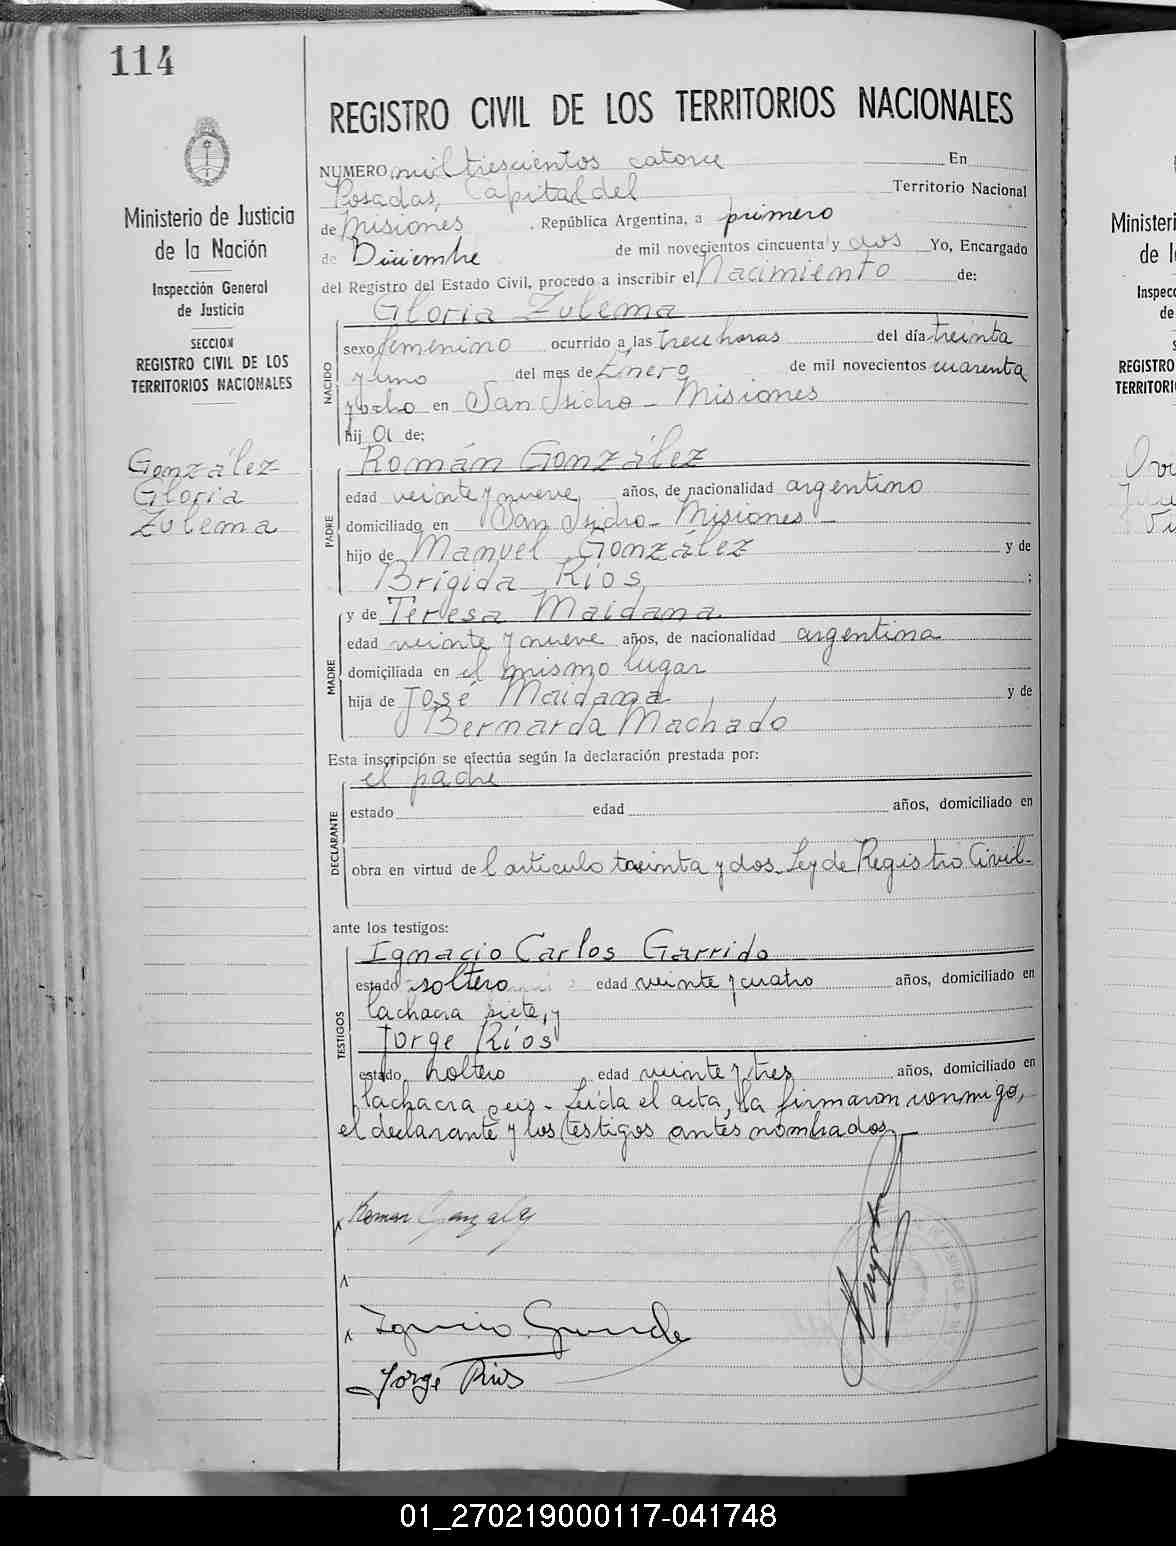 114
REGISTRO CIVIL DE LOS TERRITORIOS NACIONALES
Ministerio de Justicia
de la Nación
Inspección General
de Justicia
SECCION
REGISTRO CIVIL DE LOS
TERRITORIOS NACIONALES
González
Gloria
Zulema
NUMERO mil trescientos catorce En
Posadas, Capital del Territorio Nacional
de Misiones, República Argentina, a primero
de Diciembre de mil novecientos cincuenta y dos Yo, Encargado
del Registro del Estado Civil, procedo a inscribir el Nacimiento de:
Gloria Zulema
NACIDO
sexo femenino ocurrido a las trece horas del día treinta
y uno del mes de Enero de mil novecientos cuarenta
y ocho en San Isidro - Misiones
hij a de:
Román González
PADRE
edad veinte y nueve años, de nacionalidad argentino
domiciliado en San Isidro - Misiones -
hijo de Manuel González y de
Brígida Ríos ;
y de Teresa Maidana
MADRE
edad veinte y nueve años, de nacionalidad argentina
domiciliada en el mismo lugar
hija de José Maidana y de
Bernarda Machado
Esta inscripción se efectúa según la declaración prestada por:
el padre
DECLARANTE
estado edad años, domiciliado en
obra en virtud de l artículo treinta y dos Ley de Registro Civil -
ante los testigos:
Ignacio Carlos Garrido
TESTIGOS
estado soltero edad veinte y cuatro años, domiciliado en
la chacra siete, y
Jorge Ríos
estado soltero edad veinte y tres años, domiciliado en
la chacra seis - Leída el acta, la firmaron conmigo,
el declarante y los testigos antes nombrados -
Roman Gonzalez
Ignacio Garrido
Jorge Rios
Ministeri
de l
Inspecc
de
S
REGISTRO
TERRITORI
01_270219000117-041748